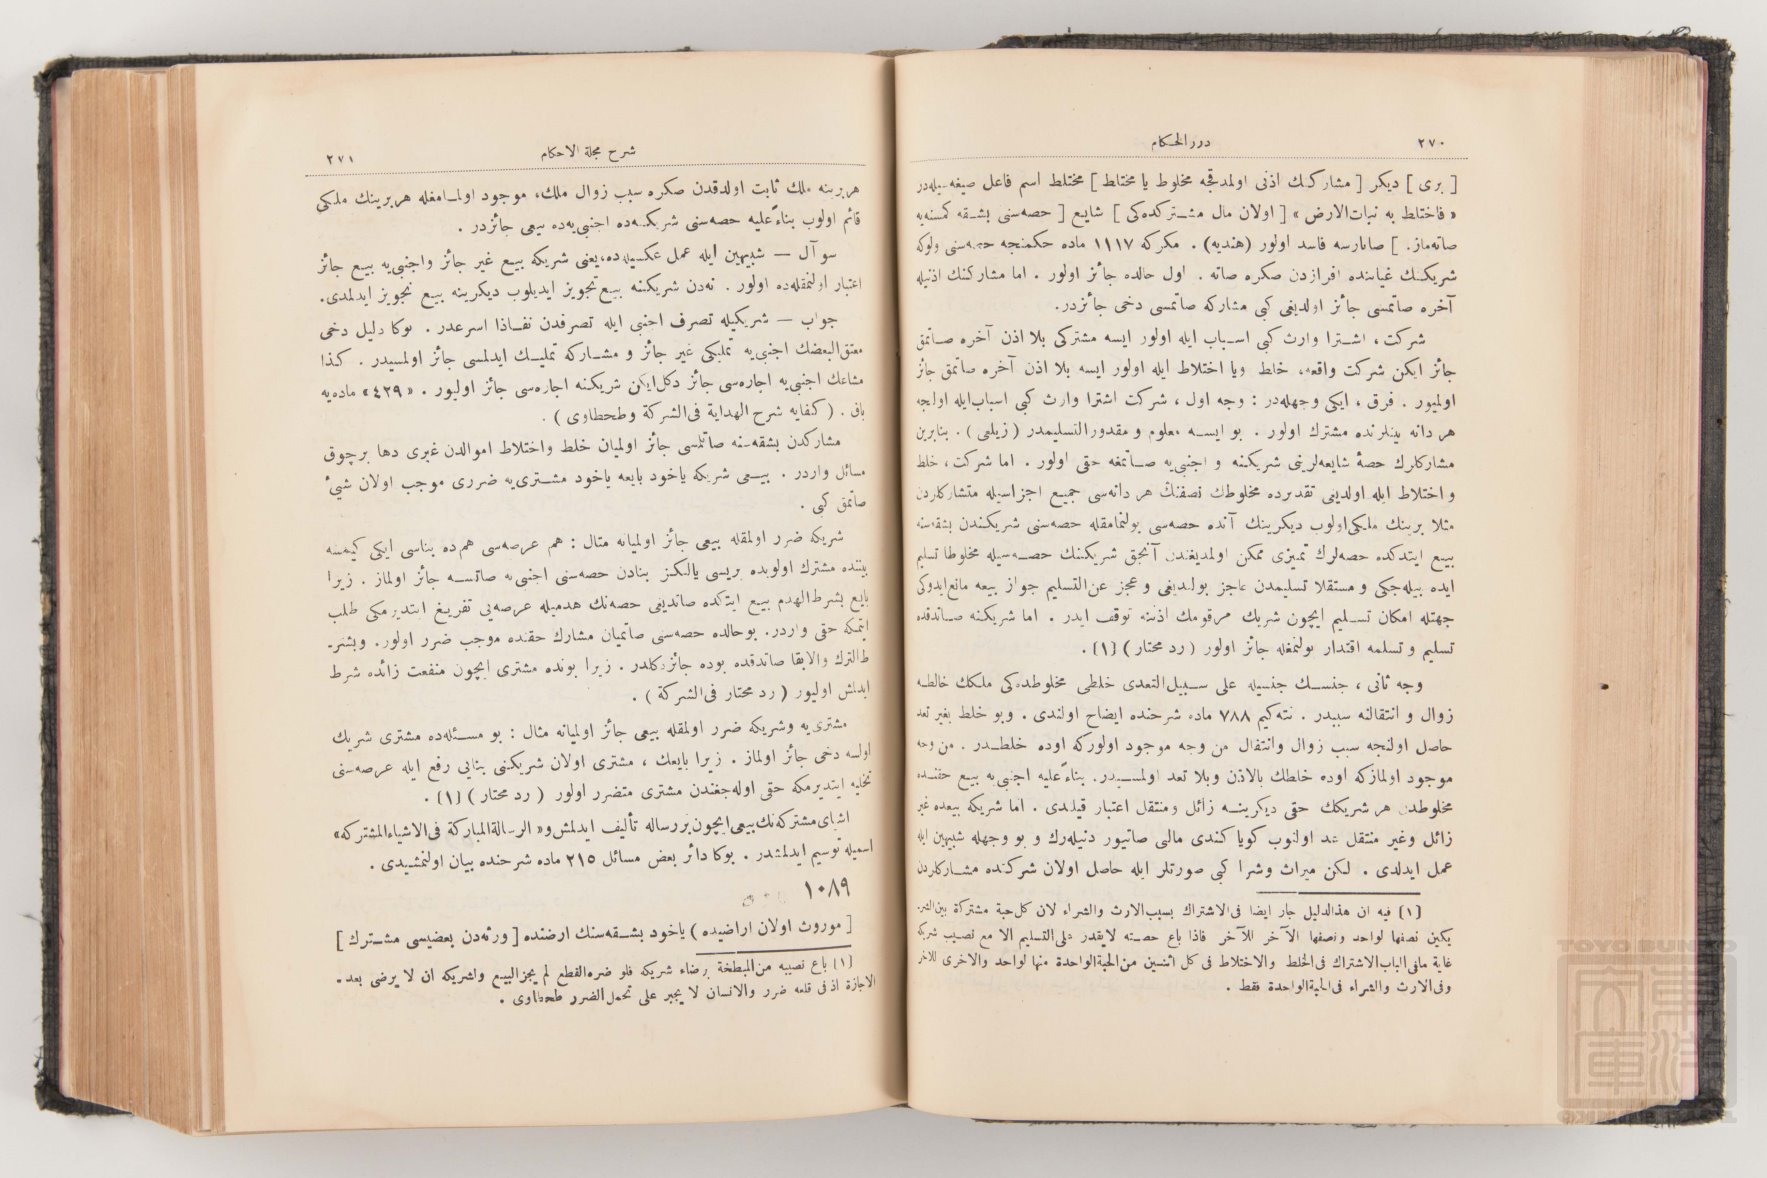 ٢٧٠
درر الحكام
[ برى ] ديكر [ مشاركنك اذنى اولمدقجه مخلوط يا مختلط ] مختلط اسم فاعل صيغه سيله در
« فاختلط به نبات الارض » [ اولان مال مشتركده كى ] شايع [ حصه سنى بشقه كمسنه يه
صاته ماز . ] صاتارسه فاسد اولور (هنديه) . مكركه ١١١٧ ماده حكمنجه حصه سنى ولوكه
شريكنك غيابنده افرازدن صكره صاته . اول حالده جائز اولور . اما مشاركنك اذنيله
آخره صاتمسى جائز اولديغى كبى مشاركه صاتمسى دخى جائزدر.
شركت ، اشترا وارث كبى اسباب ايله اولور ايسه مشتركى بلا اذن آخره صاتمق
جائز ايكن شركت واقعه، خلط ويا اختلاط ايله اولور ايسه بلا اذن آخره صاتمق جائز
اولميور . فرق ، ايكى وجهله در : وجه اول ، شركت اشترا وارث كبى اسباب ايله اولنجه
هر دانه بينلرنده مشترك اولور . بو ايسه معلوم و مقدور التسليمدر (زيلعى) . بنابرين
مشاركلرك حصۀ شايعه لرينى شريكنه و اجنبى يه صاتمغه حقى اولور . اما شركت ، خلط
و اختلاط ايله اولديغى تقديرده مخلوطك نصفنك هر دانه سى جميع اجزاسيله متشاركلردن
مثلا برينك ملكى اولوب ديكرينك آنده حصه سى بولنمامقله حصه سنى شريكندن بشقه سنه
بيع ايتدكده حصه لرك تميزى ممكن اولمديغندن آنجق شريكنك حصه سيله مخلوطا تسليم
ايده بيله جكى و مستقلا تسليمدن عاجز بولنديغى و عجز عن التسليم جواز بيعه مانع ايدوكى
جهتله امكان تسليم ايچون شريك مرقومك اذننه توقف ايدر . اما شريكنه صاتدقده
تسليم و تسلمه اقتدار بولنمغله جائز اولور ( رد محتار ) [١] .
وجه ثانى ، جنسك جنسيله على سبيل التعدى خلطى مخلوطده كى ملكك خالطه
زوال و انتقالنه سببدر . نته كيم ٧٨٨ ماده شرحنده ايضاح اولندى . وبو خلط بغير تعد
حاصل اولنجه سبب زوال وانتقال من وجه موجود اولوركه اوده خلطدر . من وجه
موجود اولمازكه اوده خلطك بالاذن وبلا تعد اولمسيدر. بناءً عليه اجنبى يه بيع حقنده
مخلوطدن هر شريكك حقى ديكرينه زائل ومنتقل اعتبار قيلندى . اما شريكه بيعده غير
زائل وغير منتقل عد اولنوب كويا كندى مالى صاتيور دنيله رك و بو وجهله شبيهين ايله
عمل ايدلدى . لكن ميراث وشرا كبى صورتلر ايله حاصل اولان شركتده مشاركلردن
[١] فيه ان هذا الدليل جار ايضا فى الاشتراك بسبب الارث والشراء لان كل حبة مشتركة بين الشر.
يكين نصفها لواحد ونصفها الآخر للآخر فاذا باع حصته لايقدر على التسليم الا مع نصيب شريكه
غاية مافى الباب الاشتراك فى الخلط والاختلاط فى كل اثنين من الحبة الواحدة منها لواحد والاخرى للاخر
وفى الارث والشراء فى الحبة الواحدة فقط .
شرح مجلة الاحكام
٢٧١
هربرينه ملك ثابت اولدقدن صكره سبب زوال ملك، موجود اولمامغله هربرينك ملكى
قائم اولوب بناءً عليه حصه سنى شريكنه ده اجنبى يه ده بيعى جائزدر .
سوآل — شبيهين ايله عمل عكسيله ده، يعنى شريكه بيع غير جائز واجنبى يه بيع جائز
اعتبار اولنمغله ده اولور . نه دن شريكنه بيع تجويز ايديلوب ديكرينه بيع تجويز ايدلمدى.
جواب — شريكيله تصرف اجنبى ايله تصرفدن نفاذا اسرعدر . بوكا دليل دخى
معتق البعضك اجنبى يه تمليكى غير جائز و مشاركه تمليك ايدلمسى جائز اولمسيدر . كذا
مشاعك اجنبى يه اجاره سى جائز دكل ايكن شريكنه اجاره سى جائز اوليور . «٤٢٩» ماده يه
باق . ( كفايه شرح الهداية فى الشركة وطحطاوى ) .
مشاركدن بشقه سنه صاتلمسى جائز اولميان خلط واختلاط اموالدن غيرى دها برچوق
مسائل واردر . بيعى شريكه ياخود بايعه ياخود مشترى يه ضررى موجب اولان شيئ
صاتمق كبى .
شريكه ضرر اولمقله بيعى جائز اولميانه مثال : هم عرصه سى هم ده بناسى ايكى كيمسه
بيننده مشترك اولوبده بريسى يالكز بنادن حصه سنى اجنبى يه صاتسه جائز اولماز . زيرا
بايع بشرط الهدم بيع ايتدكده صاتديغى حصه نك هدميله عرصه يى تفريغ ايتديرمكى طلب
ايتمكه حقى واردر. بوحالده حصه سنى صاتميان مشارك حقنده موجب ضرر اولور. وبشر-
ط الترك والابقا صاتدقده بوده جائز دكلدر . زيرا بونده مشترى ايچون منفعت زائده شرط
ايدلمش اوليور ( رد محتار فى الشركة ) .
مشترى يه وشريكه ضرر اولمقله بيعى جائز اولميانه مثال : بو مسئله ده مشترى شريك
اولسه دخى جائز اولماز . زيرا بايعك ، مشترى اولان شريكنى بنايى رفع ايله عرصه سنى
تخليه ايتديرمكه حقى اوله جغندن مشترى متضرر اولور ( رد محتار ) [١] .
اشياى مشتركه نك بيعى ايچون بر رساله تأليف ايدلمش و « الرسالة المباركة فى الاشياء المشتركه »
اسميله توسيم ايدلمشدر . بوكا دائر بعض مسائل ٢١٥ ماده شرحنده بيان اولنمشيدى .
١٠٨٩
[ موروث اولان اراضيده ) ياخود بشقه سنك ارضنده [ ورثه دن بعضيسى مشترك ]
[١] باع نصيبه من المبطخة برضاء شريكه فلو ضره القطع لم يجز البيع ولشريكه ان لا يرضى بعد .
الاجازة اذ فى قلعه ضرر والانسان لا يجبر على تحمل الضرر طحطاوى .
TOYO BUNKO